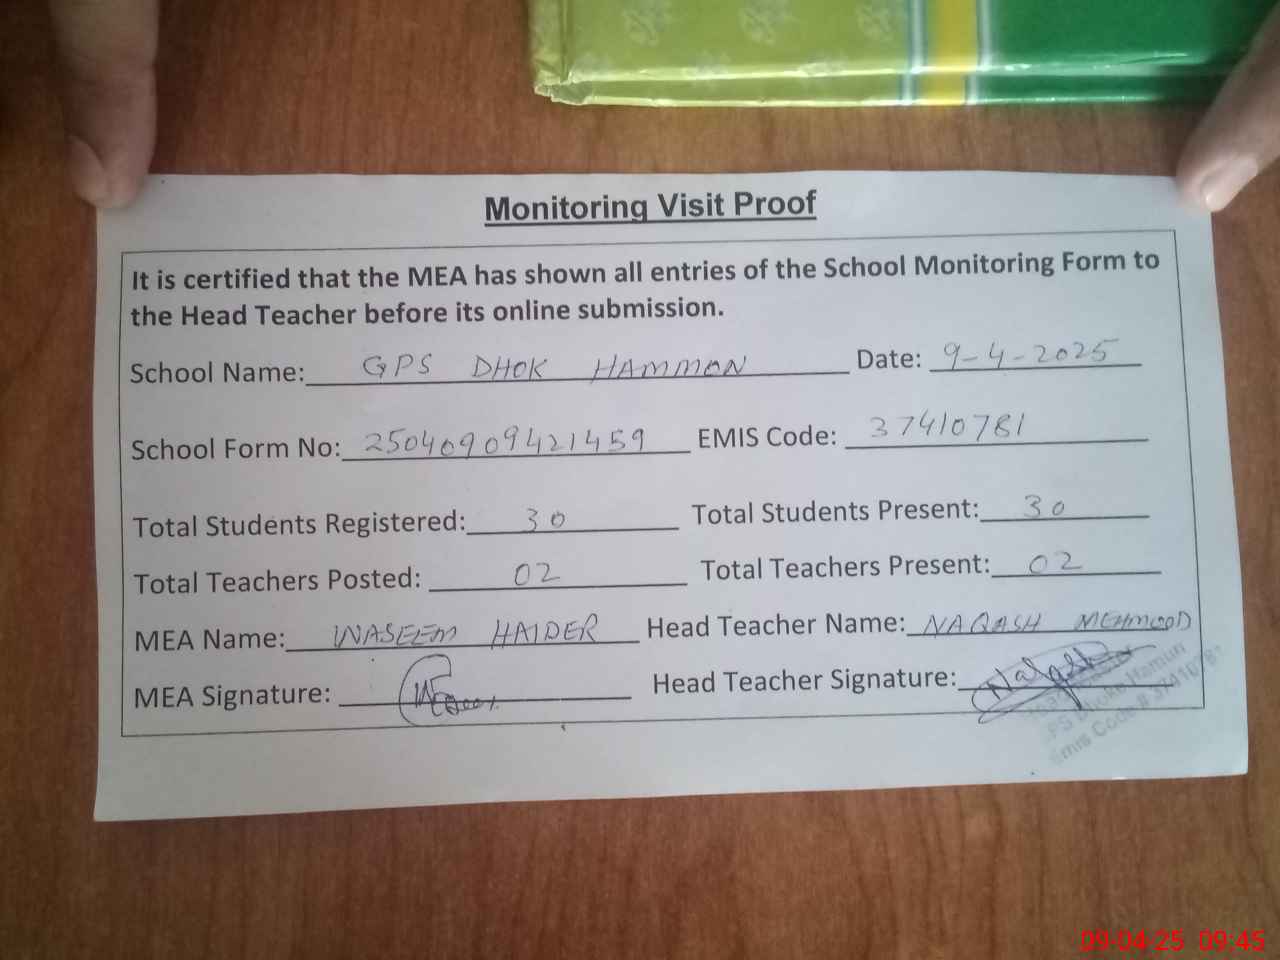 Monitoring Visit Proof
It is certified that the MEA has shown all entries of the School Monitoring Form to
the Head Teacher before its online submission.
School Name: GPS DHOK HAMMON Date: 9-4-2025
School Form No: 25040909421459 EMIS Code: 37410781
Total Students Registered: 30 Total Students Present: 30
Total Teachers Posted: 02 Total Teachers Present: 02
MEA Name: WASEEM HAIDER Head Teacher Name: NAQASH MEHMOOD
MEA Signature: Head Teacher Signature: Naqash
PS Dhoke Hamun
Emis Code # 3741078
09-04-25 09:45